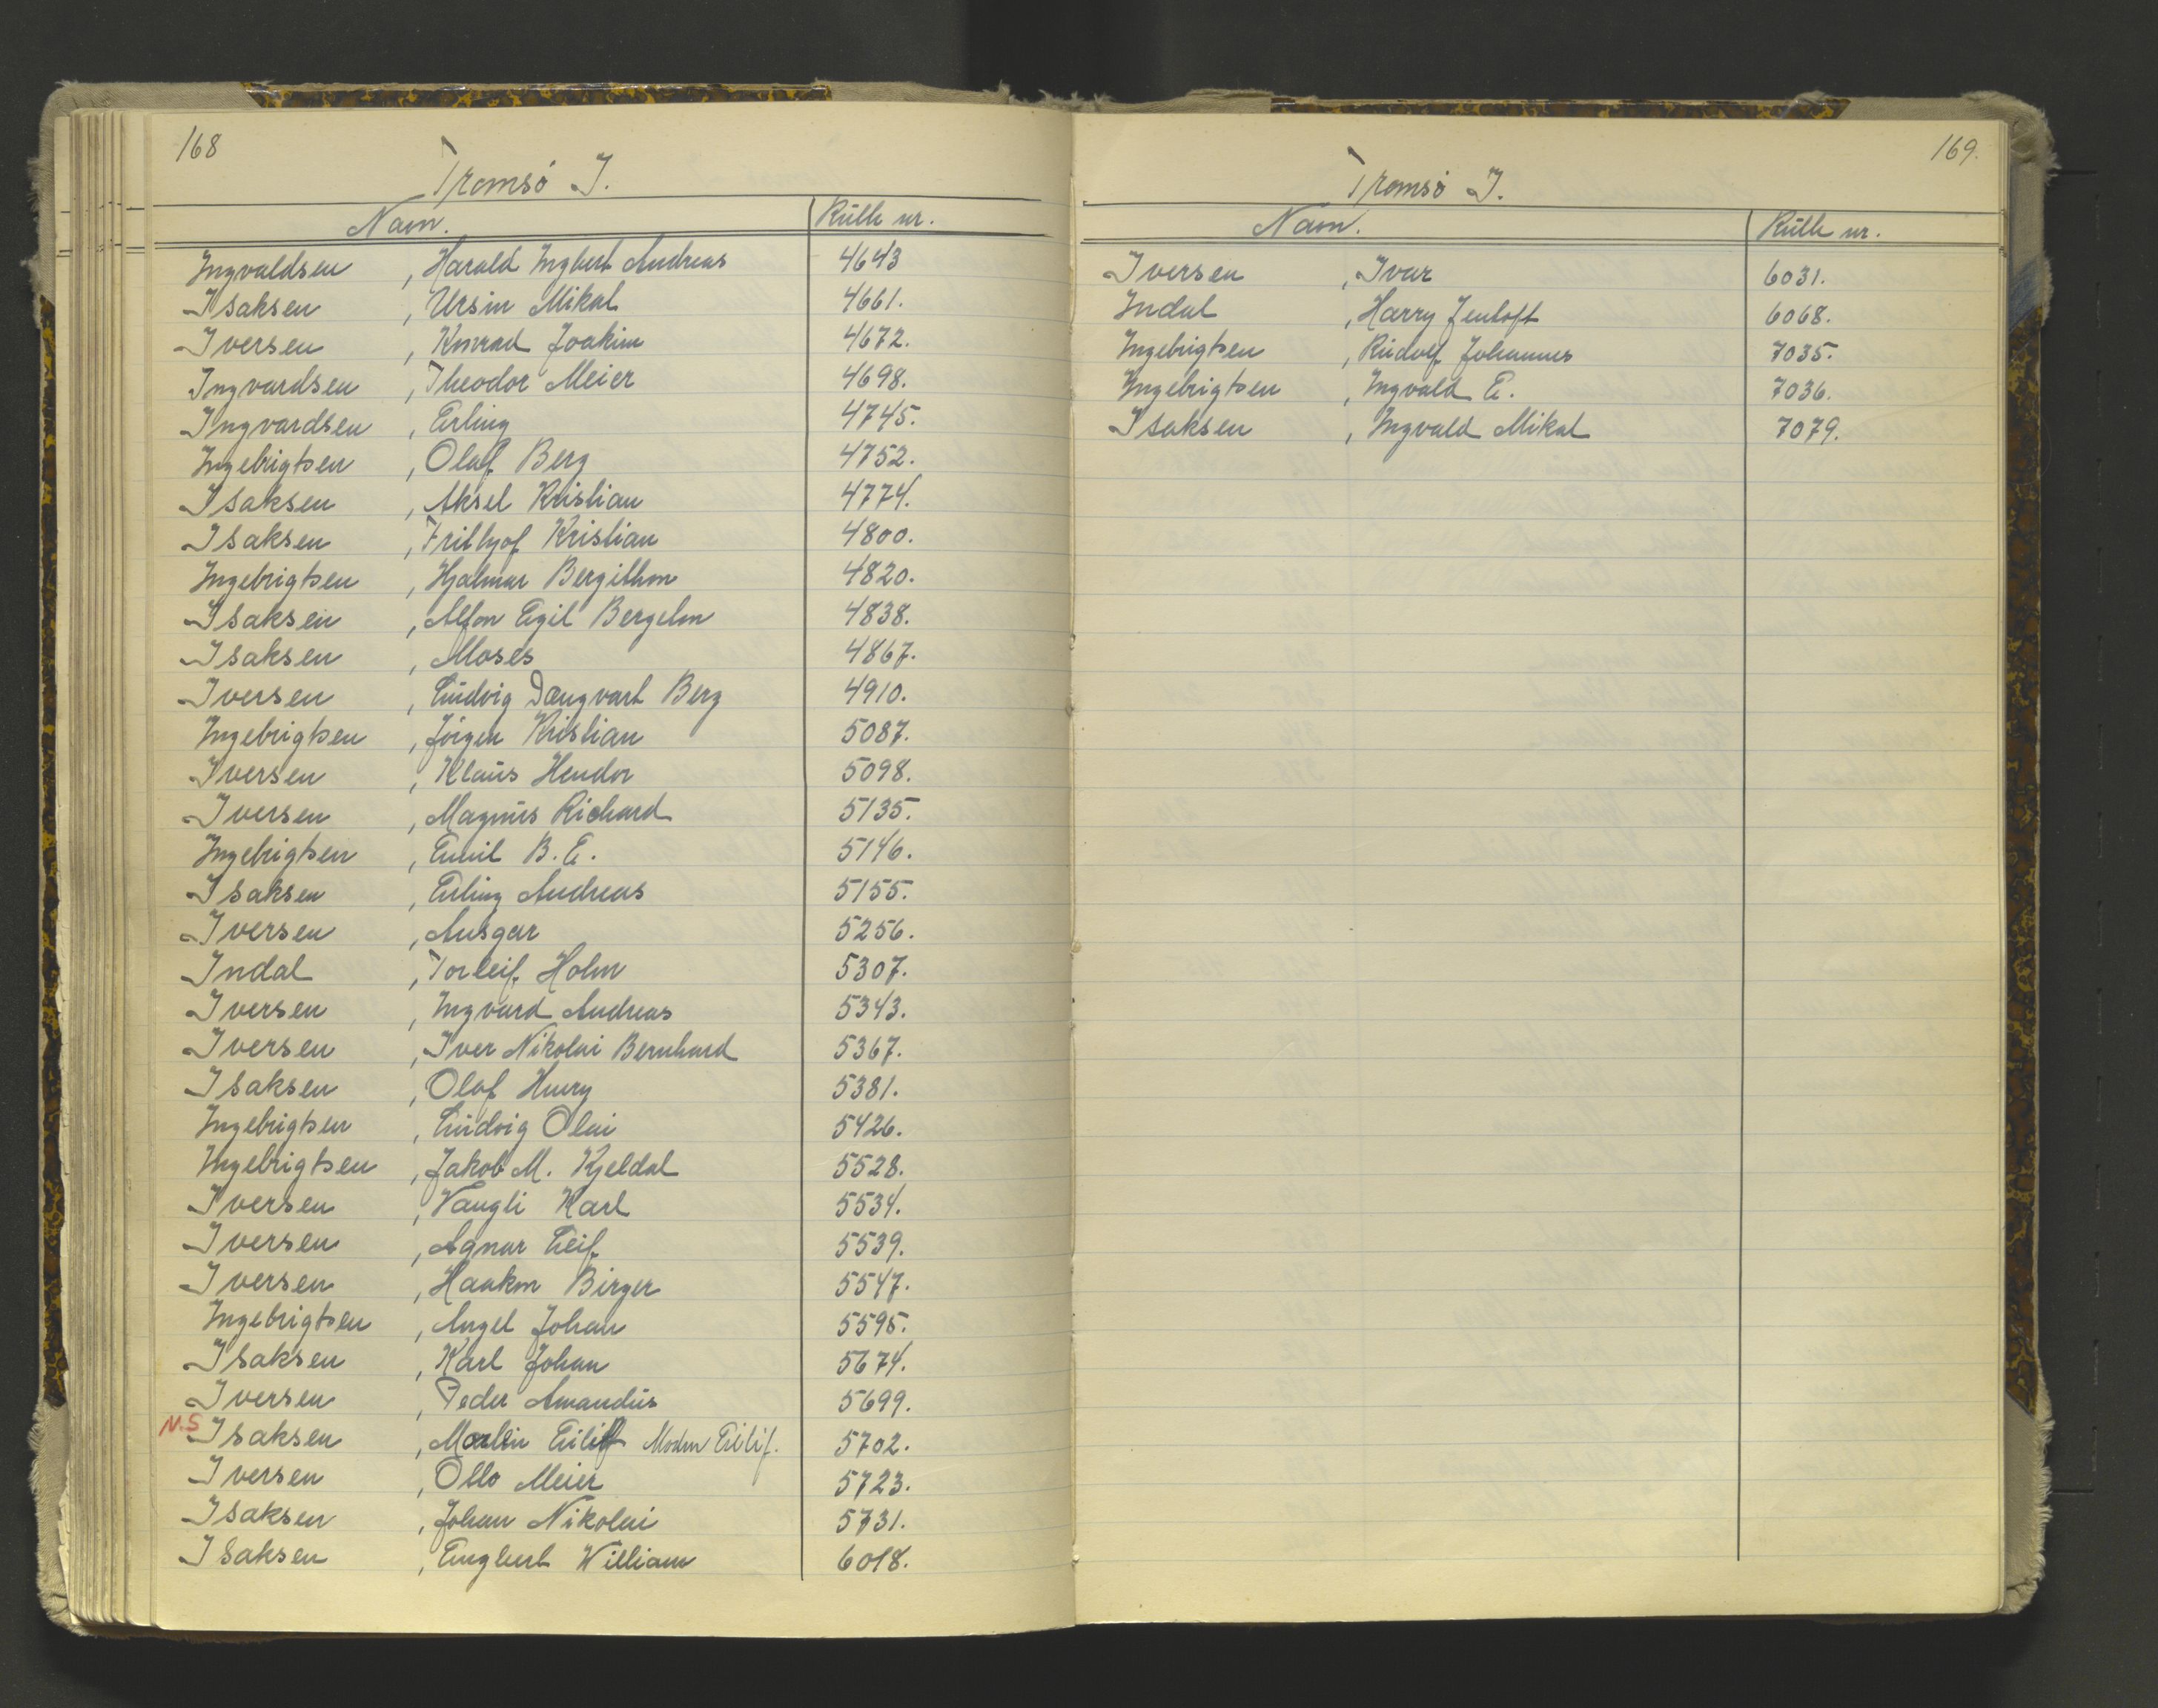 168
Tromsø I.
Navn. Rulle nr.
Ingvaldsen, Harald Ingbert Andreas 4643
Isaksen, Ursin Mikal 4661.
Iversen, Konrad Joakim 4672.
Ingvardsen, Theodor Meier 4698.
Ingvardsen, Erling 4745.
Ingebrigtsen, Olaf Berg 4752.
Isaksen, Aksel Kristian 4774.
Isaksen, Frithjof Kristian 4800.
Ingebrigtsen, Hjalmar Bergithon 4820.
Isaksen, Alfon Egil Bergeton 4838.
Isaksen, Moses 4867.
Iversen, Ludvig Dangvart Berg 4910.
Ingebrigtsen, Jørgen Kristian 5087.
Iversen, Klaus Hendor 5098.
Iversen, Magnus Richard 5135.
Ingebrigtsen, Emil B. E. 5146.
Isaksen, Erling Andreas 5155.
Iversen, Ansgar 5256.
Indal, Torleif Holm 5307.
Iversen, Ingvard Andreas 5343.
Iversen, Iver Nikolai Bernhard 5367.
Isaksen, Olaf Henry 5381.
Ingebrigtsen, Ludvig Olai 5426.
Ingebrigtsen, Jakob M. Kjeldal 5528.
Iversen, Vangli Karl 5534.
Iversen, Agnar Leif 5539.
Iversen, Haakon Birger 5547.
Ingebrigtsen, Angel Johan 5595.
Isaksen, Karl Johan 5674.
Iversen, Peder Amandus 5699.
N.S Isaksen, Eilif Eilif. 5702.
Iversen, Otto Meier 5723.
Isaksen, Johan Nikolai 5731.
Isaksen, Engbert William 6018.
169.
Tromsø I.
Navn. Rulle nr.
Iversen, Ivar 6031.
Indal, Harry Jentoft 6068.
Ingebrigtsen, Rudolf Johannes 7035.
Ingebrigtsen, Ingvald E. 7036.
Isaksen, Ingvald Mikal 7079.